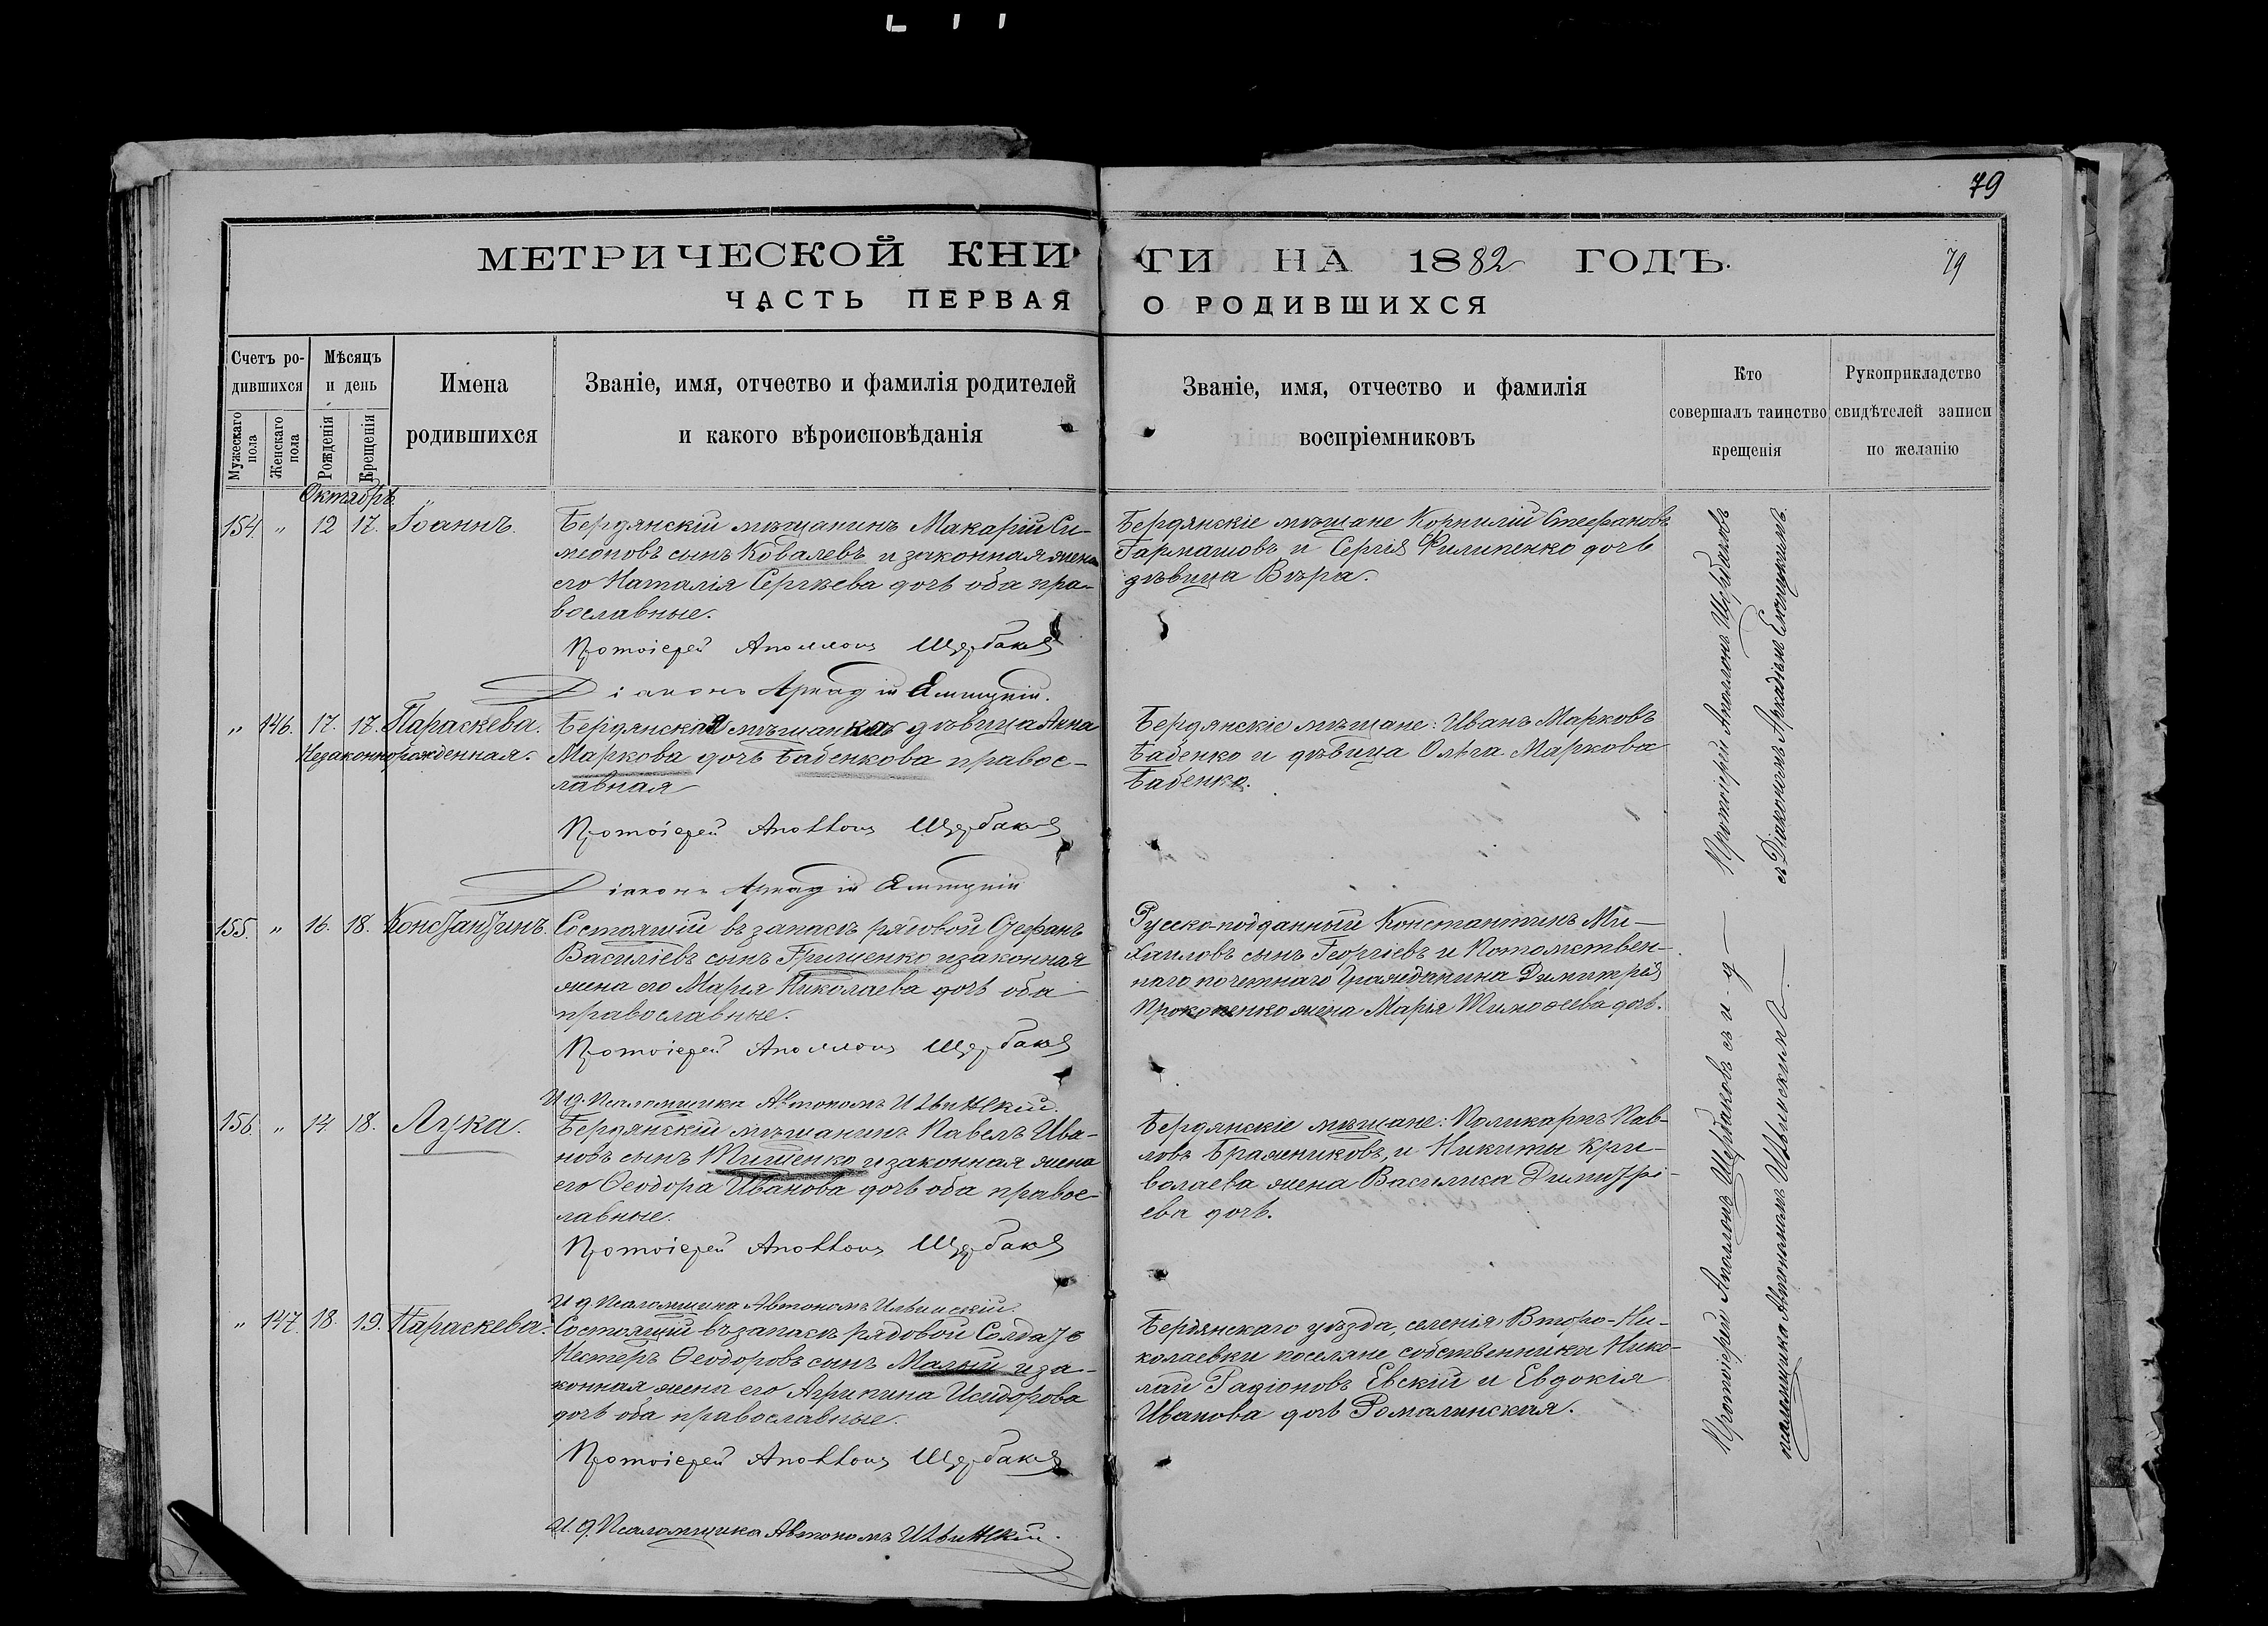 79
МЕТРИЧЕСКОЙ КНИГИ НА 1882 ГОДЪ.
79
ЧАСТЬ ПЕРВАЯ О РОДИВШИХСЯ
Счетъ родившихся
Мужескаго пола
Женскаго пола
Мѣсяцъ и день
Рожденія
Крещенія
Имена родившихся
Званіе, имя, отчество и фамилія родителей
и какого вѣроисповѣданія
Званіе, имя, отчество и фамилія
воспріемниковъ
Кто
совершалъ таинство
крещенія
Рукоприкладство
свидѣтелей записи
по желанію
Октябрь
154. " 12 17. Іоаннъ.
Бердянскій мѣщанинъ Макарій Си-
меоновъ сынъ Ковалевъ и законная жена
его Наталія Сергѣева дочь оба пра-
вославные.
Протоіерей Аполлонъ Щербаковъ
Діаконъ Аркадій
Бердянскіе мѣщане Корнилій Стефановъ
Гармашовъ и Сергія Филипенко дочь
дѣвица Вѣра.
" 146. 17. 17. Параскева.
Незаконнорожденная.
Бердянская мѣщанка дѣвица Анна
Маркова дочь Бабенкова правос-
лавная
Протоіерей Аполлонъ Щербаковъ
Діаконъ Аркадій
Бердянскіе мѣщане: Иванъ Марковъ
Бабенко и дѣвица Ольга Маркова
Бабенко.
155. " 16. 18. Константинъ.
Состоящій въ запасѣ рядовой Стефанъ
Василіевъ сынъ Гриценко и законная
жена его Марія Николаева дочь оба
православные.
Протоіерей Аполлонъ Щербаковъ
И. д. Псаломщика Автономъ Ильинскій.
Русско-подданный Константинъ Ми-
хаиловъ сынъ Георгіевъ и Потомствен-
наго почетнаго Гражданина Димитрія
Прокопенко жена Марія Тимоѳеева дочь.
156. " 14. 18. Лука.
Бердянскій мѣщанинъ Павелъ Ива-
новъ сынъ Тищенко и законная жена
его Ѳеодора Иванова дочь оба правос-
лавные.
Протоіерей Аполлонъ Щербаковъ
И. д. Псаломщика Автономъ Ильинскій.
Бердянскіе мѣщане: Поликарпъ Пав-
ловъ Бражниковъ, и Никиты Кри-
волаева жена Василиса Димитрі-
ева дочь.
" 147. 18. 19. Параскева.
Состоящій въ запасѣ рядовой Солдатъ
Нестеръ Ѳеодоровъ сынъ Малый и за-
конная жена его Агрипина Исидорова
дочь оба православные.
Протоіерей Аполлонъ Щербаковъ
И. д. Псаломщика Автономъ Ильинскій.
Бердянскаго уѣзда, селенія Второ-Ни-
колаевки поселяне собственники Нико-
лай Радіоновъ Евскій и Евдокія
Иванова дочь Ромалинская.
Протоіерей Аполлонъ Щербаковъ
съ Діакономъ Аркадіемъ
Протоіерей Аполлонъ Щербаковъ съ и. д.
псаломщика Автономомъ Ильинскимъ.